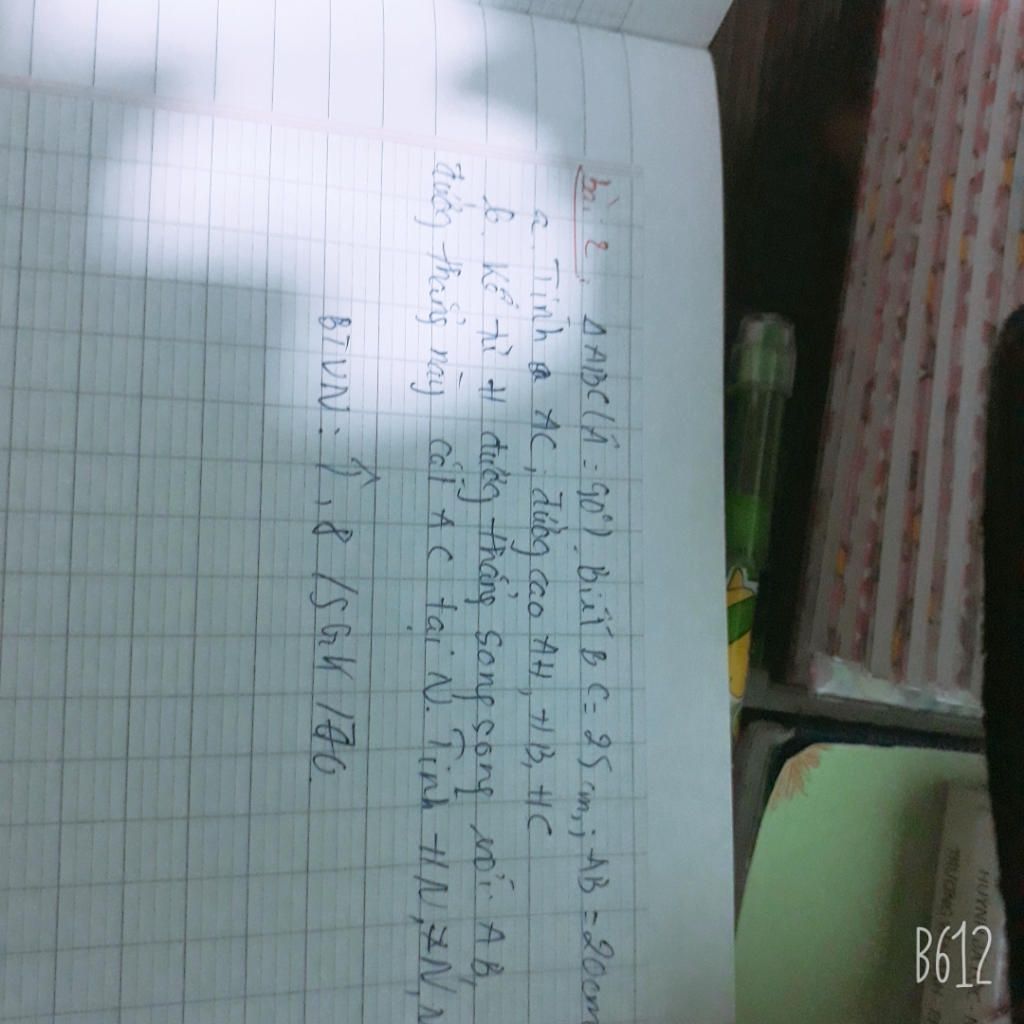 bài 2: ΔABC (Â = 90°). Biết BC = 25 cm, ; AB = 20cm
a. Tính AC, đường cao AH, HB, HC
b. Kẻ từ H đường thẳng song song với AB,
đường thẳng này cắt AC tại N. Tính HN, AN,
BTVN: 7, 8 / SGK / 70
B612
HUỲNH
TRƯỜNG